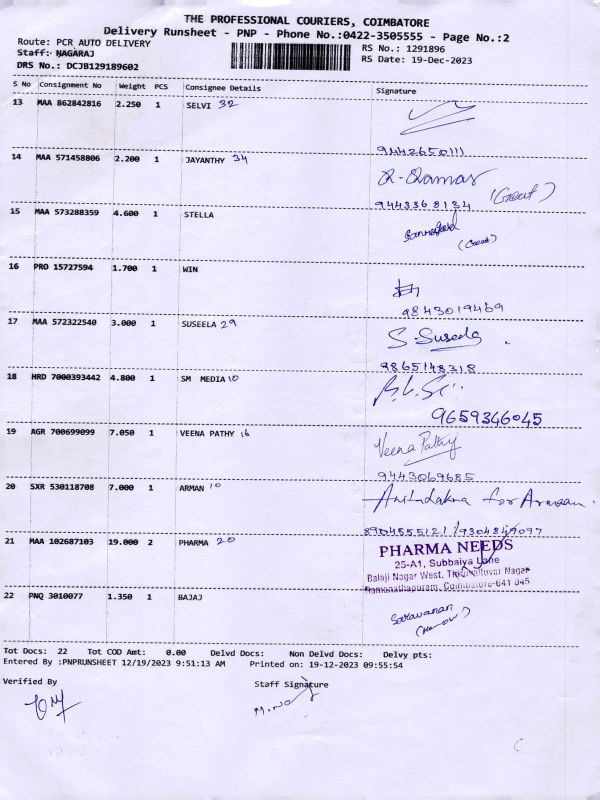 THE PROFESSIONAL COURIERS, COIMBATORE
Delivery Runsheet - PNP - Phone No.:0422-3505555 - Page No.:2
Route: PCR AUTO DELIVERY RS No.: 1291896
Staff: NAGARAJ RS Date: 19-Dec-2023
DRS No.: DCJB129189602
S No Consignment No Weight PCS Consignee Details Signature
13 MAA 862842816 2.250 1 SELVI 32
9442650111
14 MAA 571458806 2.200 1 JAYANTHY 34
9443368134
15 MAA 573288359 4.600 1 STELLA
16 PRO 15727594 1.700 1 WIN
9843019469
17 MAA 572322540 3.000 1 SUSEELA 29 S. Suseela
9865148318
18 HRD 7000393442 4.800 1 SM MEDIA 10
9659346045
19 AGR 700699099 7.050 1 VEENA PATHY 16 Veena Pathy
9443069685
20 SXR 530118708 7.000 1 ARMAN 10 for Armaan.
8904555121 /
21 MAA 102687103 19.000 2 PHARMA 20 PHARMA NEEDS
25-A1, Subbaiya Lane
Balaji Nagar West, Thiruvalluvar Nagar
Ramanathapuram, Coimbatore-641 045
22 PNQ 3010077 1.350 1 BAJAJ
Saravanan
Tot Docs: 22 Tot COD Amt: 0.00 Delvd Docs: Non Delvd Docs: Delvy pts:
Entered By :PNPRUNSHEET 12/19/2023 9:51:13 AM Printed on: 19-12-2023 09:55:54
Verified By Staff Signature